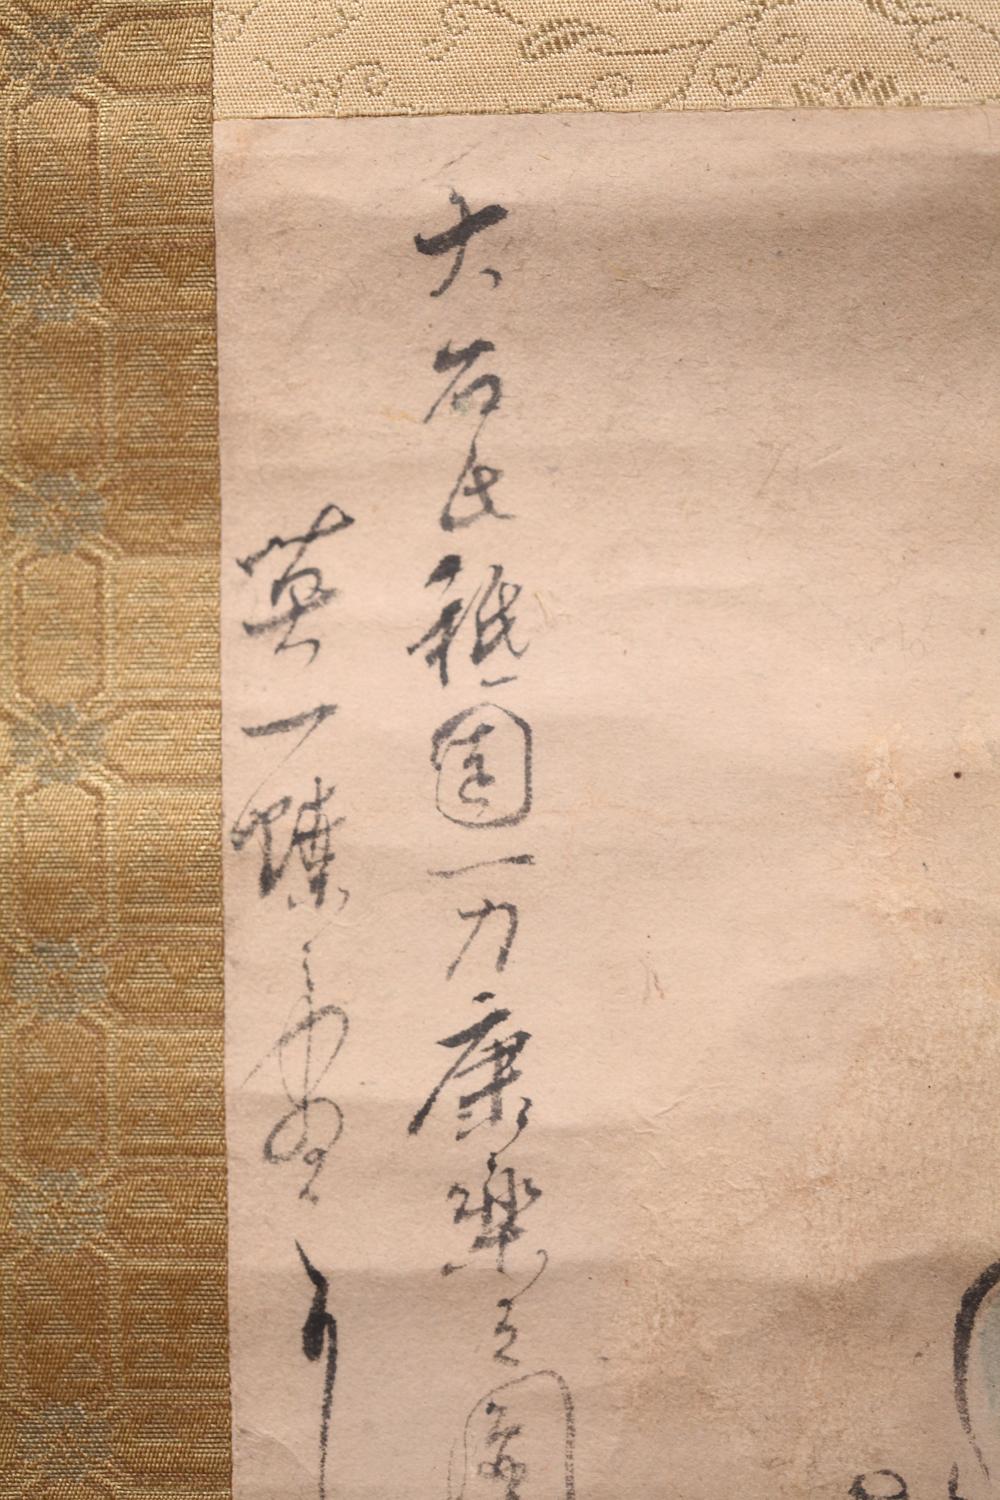 大石氏祇園一力康楽之圖
英一蝶画